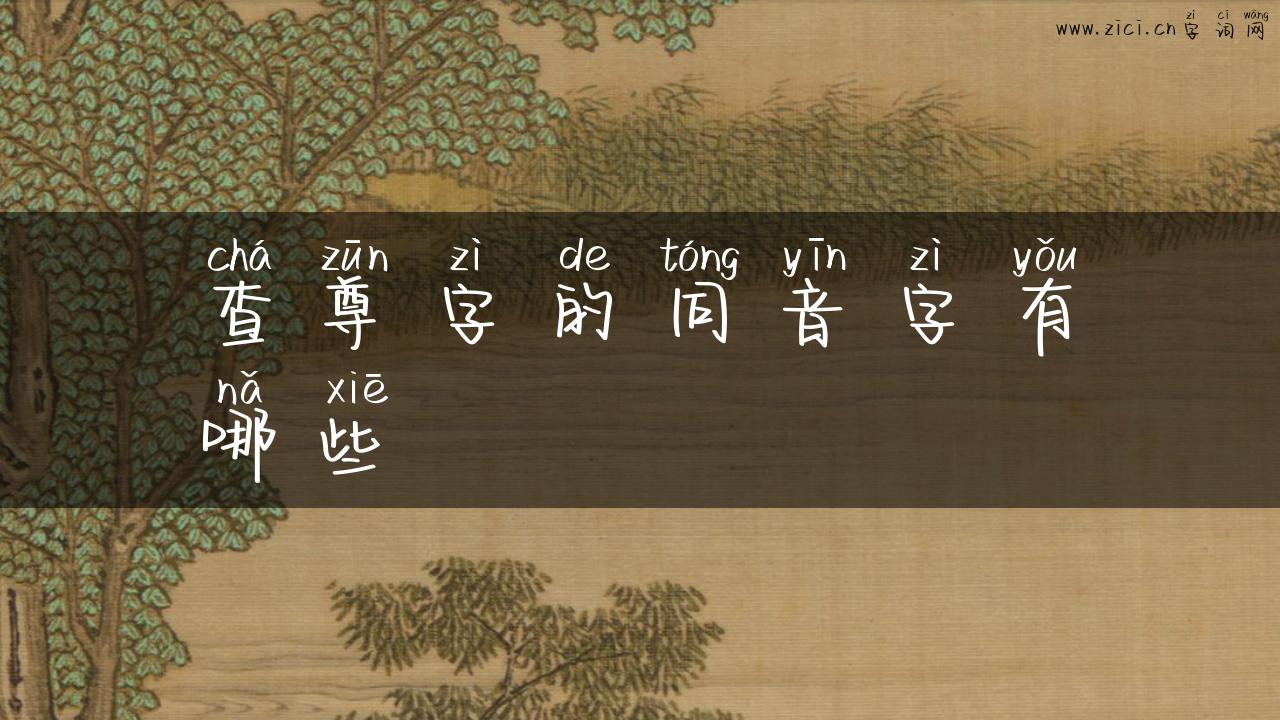 zì cí wǎng
www.zici.cn字词网
chá zūn zì de tóng yīn zì yǒu
查尊字的同音字有
nǎ xiē
哪些